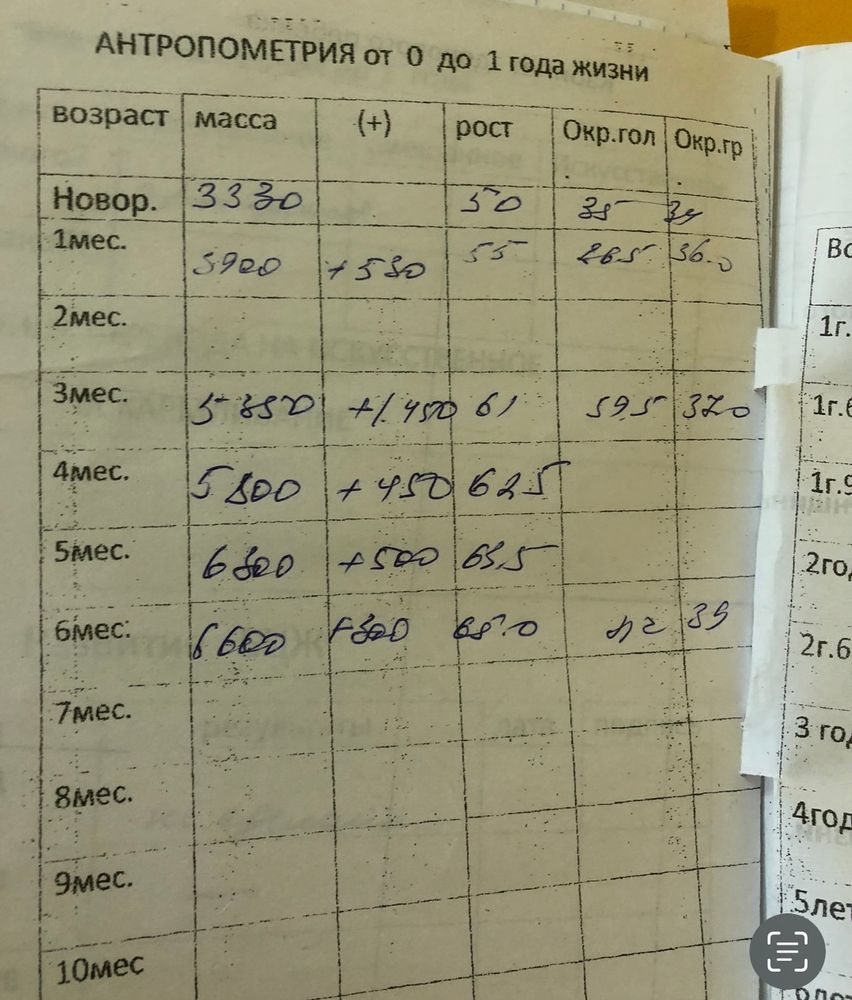 АНТРОПОМЕТРИЯ от 0 до 1 года жизни
возраст масса (+) рост Окр.гол. Окр.гр.
Новор. 3330 50 35 34
1мес. 3900 +530 55 36.0
2мес.
3мес. 5350 +1.450 61 39.5 37.0
4мес. 5800 +450 62.5
5мес. 6300 +500 63.5
6мес. 6600 +300 65.0 42 39
7мес.
8мес.
9мес.
10мес
1г.
1г.6
1г.9
2год
2г.6
3 год
4год
5лет